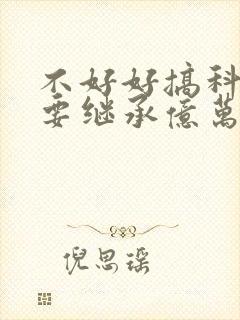 不好好搞科
要继承億萬
倪思瑶